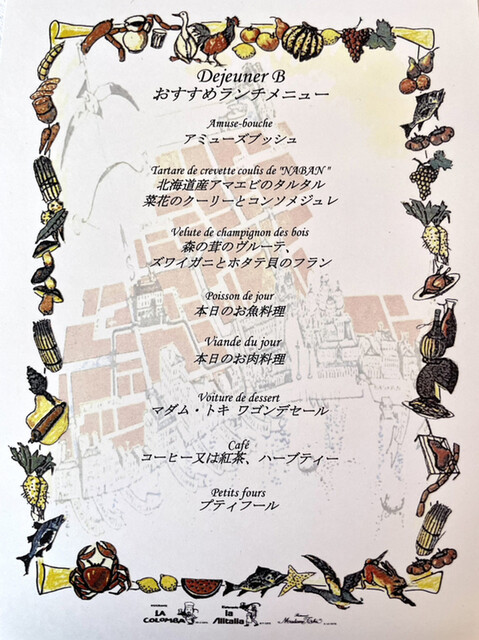 Dejeuner B
おすすめランチメニュー
Amuse-bouche
アミューズブッシュ
Tartare de crevette coulis de "NABAN"
北海道産アマエビのタルタル
菜花のクーリーとコンソメジュレ
Velute de champignon des bois
森の茸のヴルーテ、
ズワイガニとホタテ貝のフラン
Poisson de jour
本日のお魚料理
Viande du jour
本日のお肉料理
Voiture de dessert
マダム・トキ ワゴンデセール
Café
コーヒー又は紅茶、ハーブティー
Petits fours
プティフール
LA COLOMBA
la Alitalia
Madame Toki